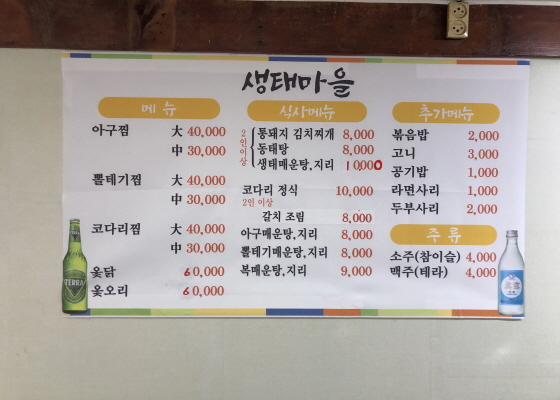 생태마을
메 뉴
아구찜 大 40,000
中 30,000
뽈테기찜 大 40,000
中 30,000
코다리찜 大 40,000
中 30,000
옻닭 60,000
옻오리 60,000
식사메뉴
2인이상
통돼지 김치찌개 8,000
동태탕 8,000
생태매운탕,지리 10,000
코다리 정식 10,000
2인 이상
갈치 조림 8,000
아구매운탕,지리 8,000
뽈테기매운탕,지리 8,000
복매운탕,지리 9,000
추가메뉴
볶음밥 2,000
고니 3,000
공기밥 1,000
라면사리 1,000
두부사리 2,000
주 류
소주(참이슬) 4,000
맥주(테라) 4,000
TERRA